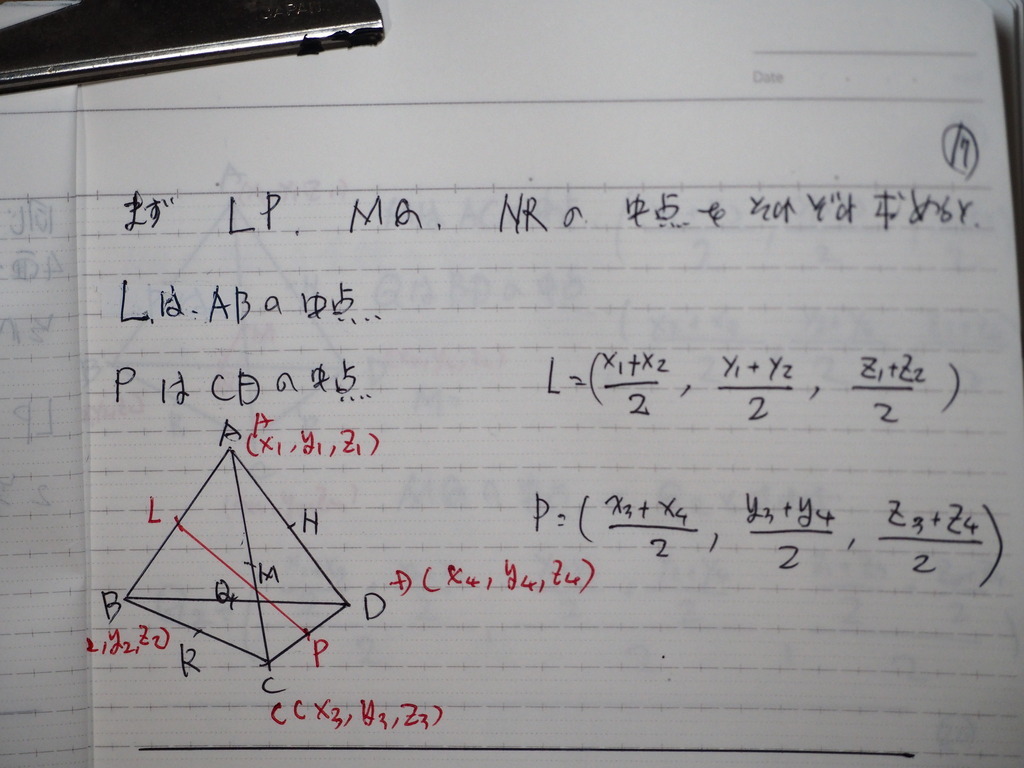 JAPAN
Date
17
まず LP. MQ. NRの 中点を それぞれ求めると.
Lは.ABの中点...
PはCDの中点...
L=(x1+x2/2, y1+y2/2, z1+z2/2)
P=(x3+x4/2, y3+y4/2, z3+z4/2)
A A(x1,y1,z1)
L
H
M
Q
B
D D(x4,y4,z4)
2,y2,z2)
R
P
C
C(x3,y3,z3)